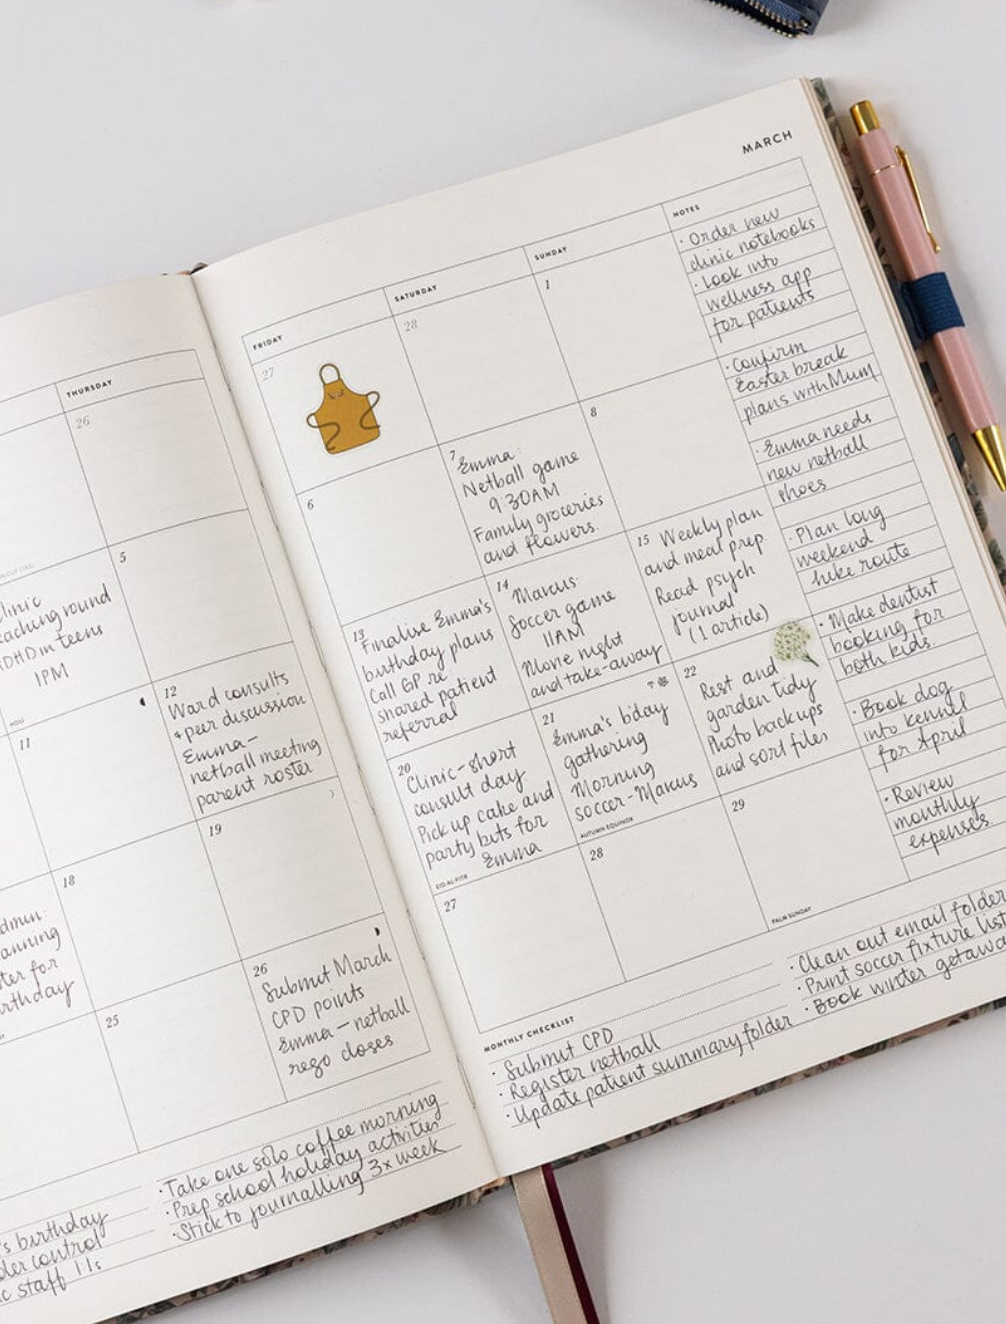 MARCH
THURSDAY
26
5
Clinic
teaching round
ADHD in teens
1PM
11
12
Ward consults
+ peer discussion
Emma-
netball meeting
parent roster
18
19
birthday
25
26
Submit March
CPD points
Emma-netball
rego closes
's birthday
control
staff 1:1s
· Take one solo coffee morning
· Prep school holiday activities
· Stick to journalling 3x week
FRIDAY
SATURDAY
SUNDAY
NOTES
27
28
1
6
7
Emma:
Netball game
9:30AM
Family groceries
and flowers.
8
13
Finalise Emma's
birthday plans
Call GP re
shared patient
referral
14
Marcus:
Soccer game
11AM
Movie night
and take-away
15 Weekly plan
and meal prep
Read psych
journal
(1 article)
20
Clinic-short
consult day
Pick up cake and
party bits for
Emma
EID AL-FITR
21
Emma's b'day
gathering
Morning
soccer-Marcus
AUTUMN EQUINOX
22
Rest and
garden tidy
Photo backups
and sort files
27
28
29
PALM SUNDAY
· Order new
clinic notebooks
· Look into
wellness app
for patients
· Confirm
Easter break
plans with Mum
· Emma needs
new netball
shoes
· Plan long
weekend
hike route
· Make dentist
booking for
both kids.
· Book dog
into kennel
for April
· Review
monthly
expenses
MONTHLY CHECKLIST
· Submit CPD
· Register netball
· Update patient summary folder
· Clean out email folder
· Print soccer fixture list
· Book winter getawa